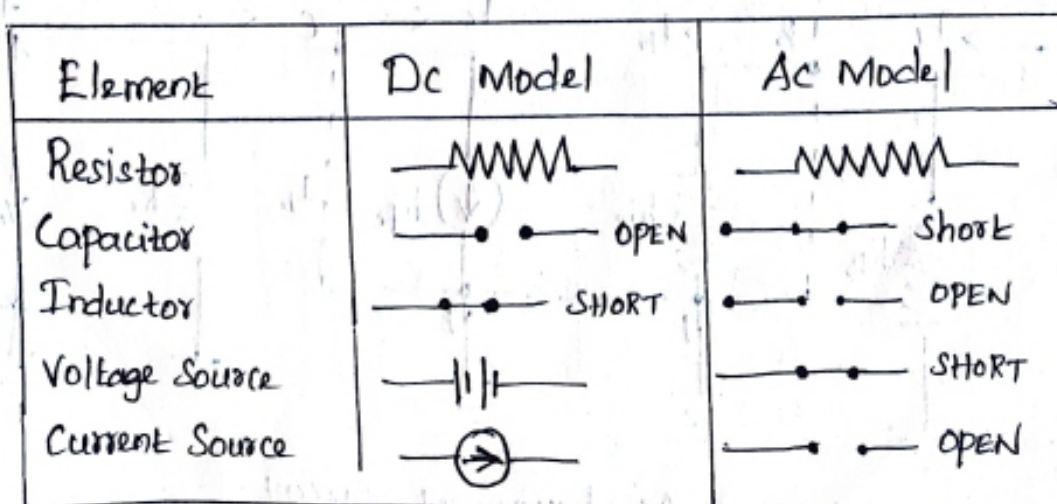 Element Dc Model Ac Model
Resistor
Capacitor OPEN Short
Inductor SHORT OPEN
Voltage Source SHORT
Current Source OPEN